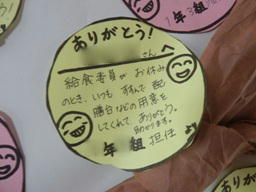 ありがとう!
さんへ
給食委員が お休み
のとき、いつも すすんで 配
膳台などの用意を
してくれて ありがとう。
助かります。
年 組 担任 より
年 組